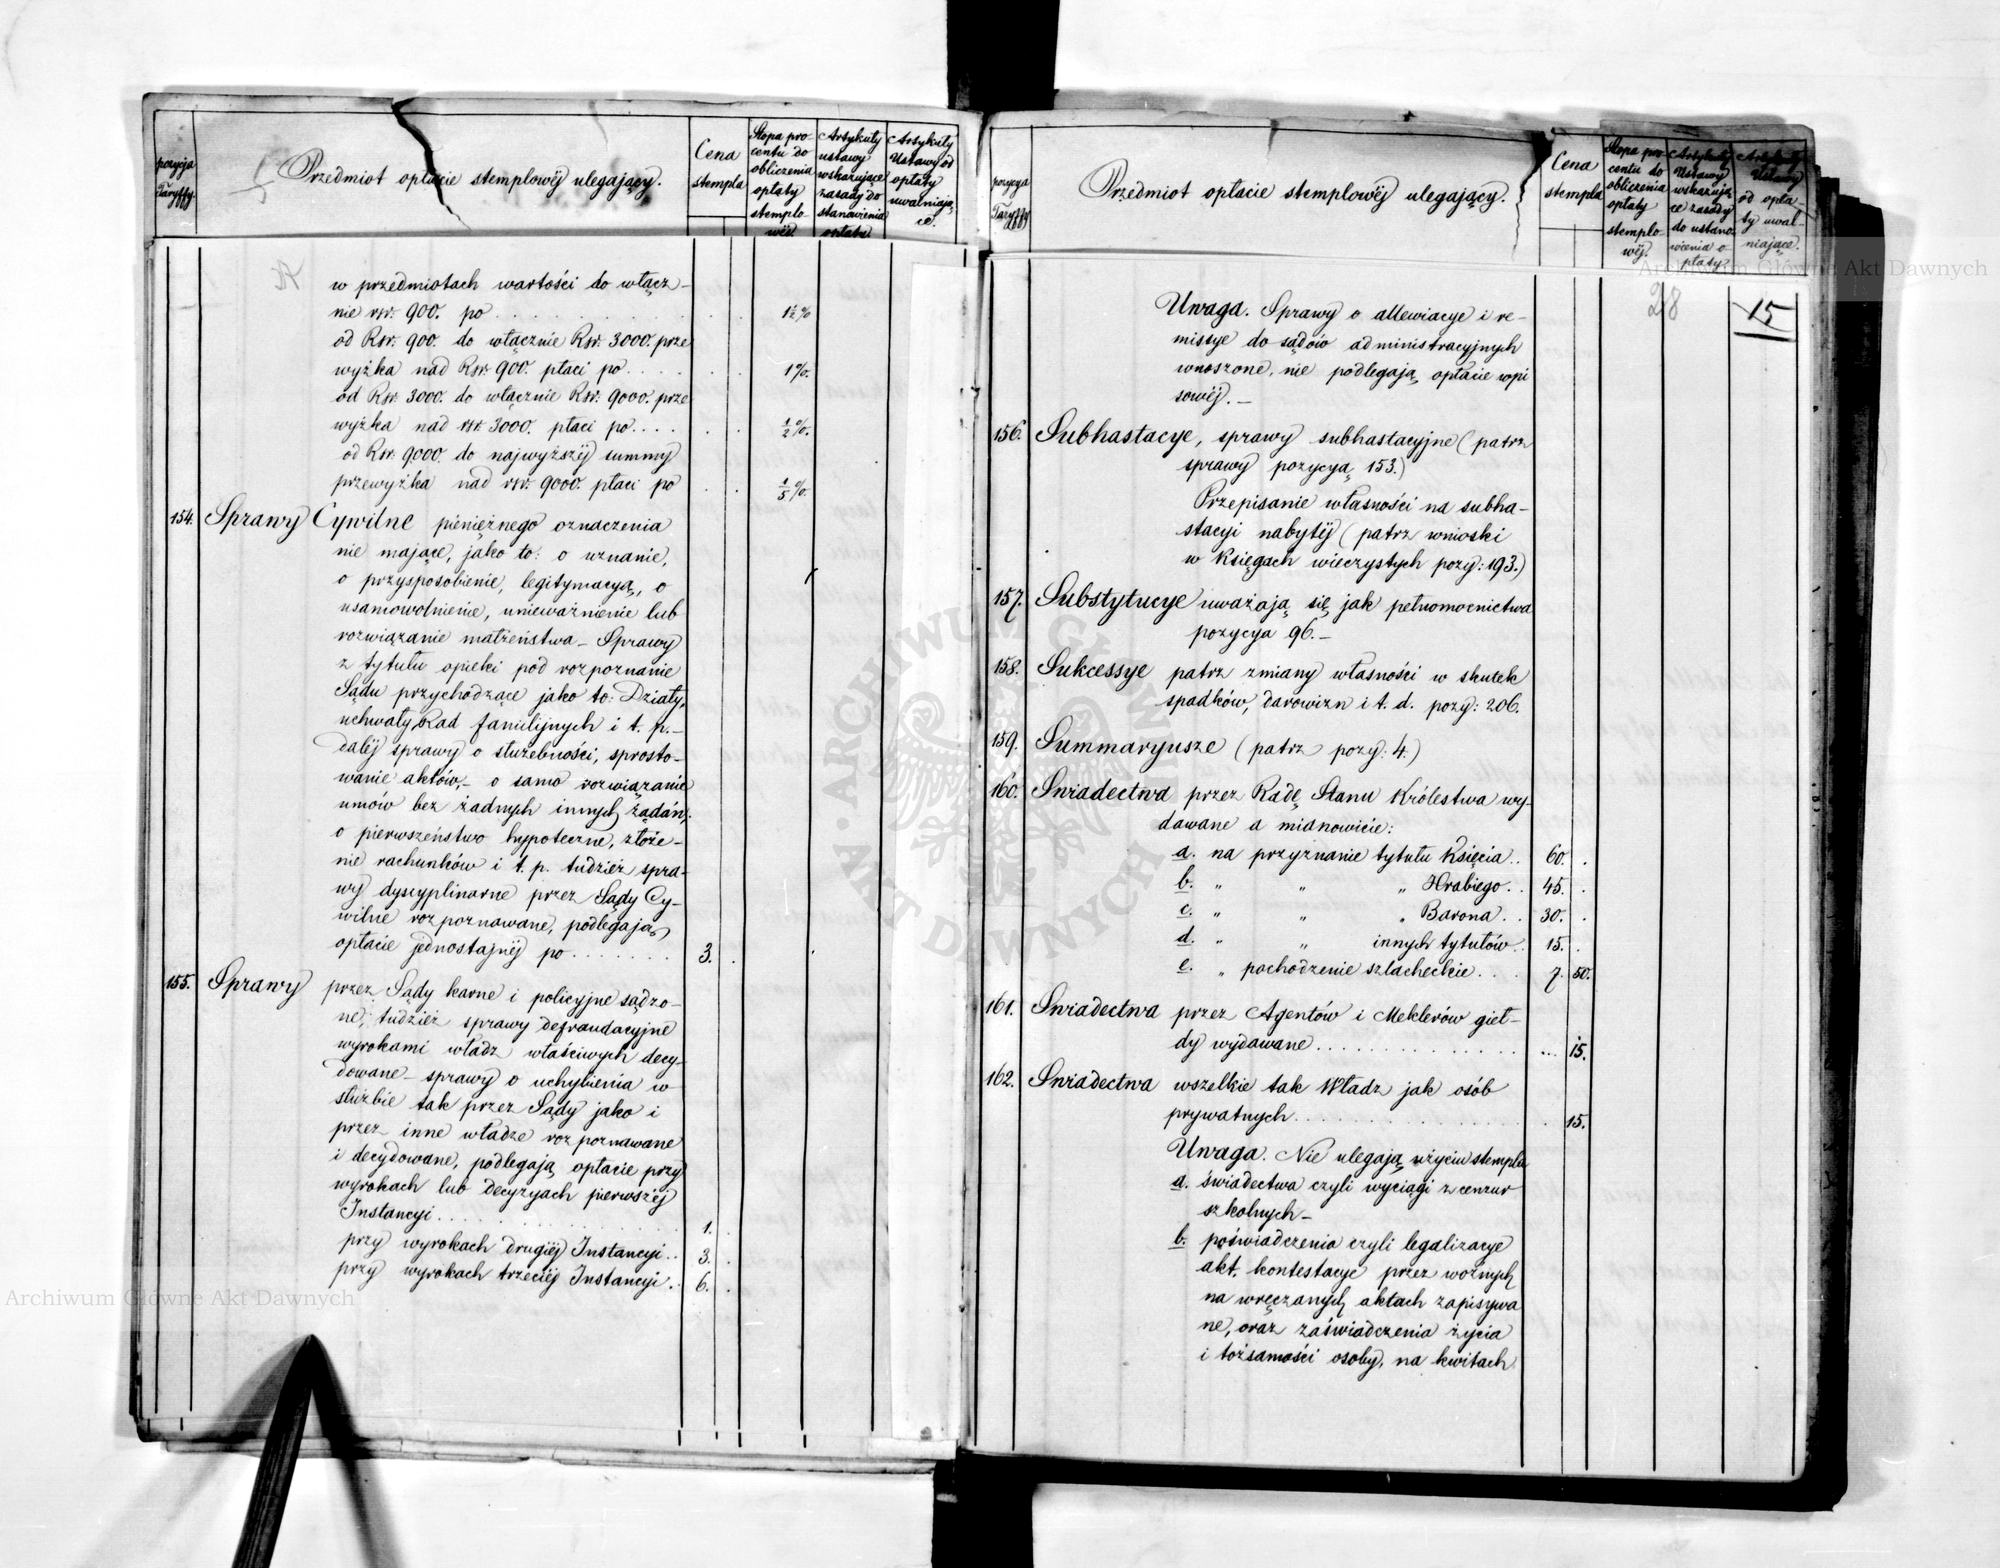 pozycja Taryffy
Przedmiot opłacie stemplowéj ulegający.
Cena stempla
Stopa procentu do obliczenia opłaty stemplowéj.
Artykuły ustawy wskazujące zasady do stanowienia opłaty.
Artykuły Ustawy od opłaty uwalniające.
w przedmiotach wartości do włącz-
nie rsr. 900. po . . . 1½%
od Rsr. 900. do włącznie Rsr. 3000. prze
wyżka nad Rsr. 900. płaci po . . . 1%.
od Rsr. 3000. do włącznie Rsr. 9000. prze
wyżka nad rsr. 3000. płaci po . . . ½%.
od Rsr. 9000. do najwyższéj summy
przewyżka nad rsr. 9000. płaci po . . ⅕%.
154. Sprawy Cywilne pieniężnego oznaczenia
nie mające, jako to: o uznanie,
o przysposobienie, legitymacyą, o
usamowolnienie, unieważnienie lub
rozwiązanie małżeństwa – Sprawy
z tytułu opieki pod rozpoznanie
Sądu przychodzące jako to: Działy,
uchwały Rad familijnych i t. p. –
daléj sprawy o służebności, sprosto-
wanie aktów, – o samo rozwiązanie
umów bez żadnych innych żądań,
o pierwszeństwo hypoteczne, złoże-
nie rachunków i t. p. tudzież spra-
wy dyscyplinarne przez Sądy Cy-
wilne rozpoznawane, podlegają
opłacie jednostajnéj po . . . 3.
155. Sprawy przez Sądy karne i policyjne sądzo-
ne, tudzież sprawy defraudacyjne
wyrokami władz właściwych decy-
dowane – sprawy o uchybienia w
służbie tak przez Sądy jako i
przez inne władze rozpoznawane
i decydowane, podlegają opłacie przy
wyrokach lub decyzyach pierwszéj
Instancyi . . . 1.
przy wyrokach drugiéj Instancyi . . 3.
przy wyrokach trzeciéj Instancyi . . 6.
Archiwum Główne Akt Dawnych
pozycya Taryffy
Przedmiot opłacie stemplowéj ulegający.
Cena stempla
Stopa procentu do obliczenia opłaty stemplowéj.
Artykuły Ustawy wskazujące zasady do ustanowienia opłaty.
Artykuły Ustawy od opłaty uwalniające.
Archiwum Główne Akt Dawnych
28
15
Uwaga. Sprawy o allewiacye i re-
missye do sądów administracyjnych
wnoszone, nie podlegają opłacie wpi
sowéj. –
156. Subhastacye, sprawy subhastacyjne (patrz
sprawy pozycyą 153.)
Przepisanie własności na subha-
stacyi nabytéj (patrz wnioski
w Księgach wieczystych pozy: 193.)
157. Substytucye uważają się jak pełnomocnictwa
pozycya 96. –
158. Sukcessye patrz zmiany własności w skutek
spadków, darowizn i t. d. pozy: 206.
159. Summaryusze (patrz pozy. 4.)
160. Świadectwa przez Radę Stanu Królestwa wy-
dawane a mianowicie:
a. na przyznanie tytułu Księcia . . 60.
b. " " " Hrabiego . . 45.
c. " " " Barona . . 30.
d. " " innych tytułów . . 15.
e. " pochodzenie szlacheckie . . . 7. 50.
161. Świadectwa przez Agentów i Meklerów gieł-
dy wydawane . . . 15.
162. Świadectwa wszelkie tak Władz jak osób
prywatnych . . . 15.
Uwaga. Nie ulegają użyciu stempla
a. świadectwa czyli wyciągi z cenzur
szkolnych –
b. poświadczenia czyli legalizacye
akt, kontestacye przez woźnych
na wręczanych aktach zapisywa
ne, oraz zaświadczenia życia
i tożsamości osoby, na kwitach
ARCHIWUM GŁÓWNE AKT DAWNYCH